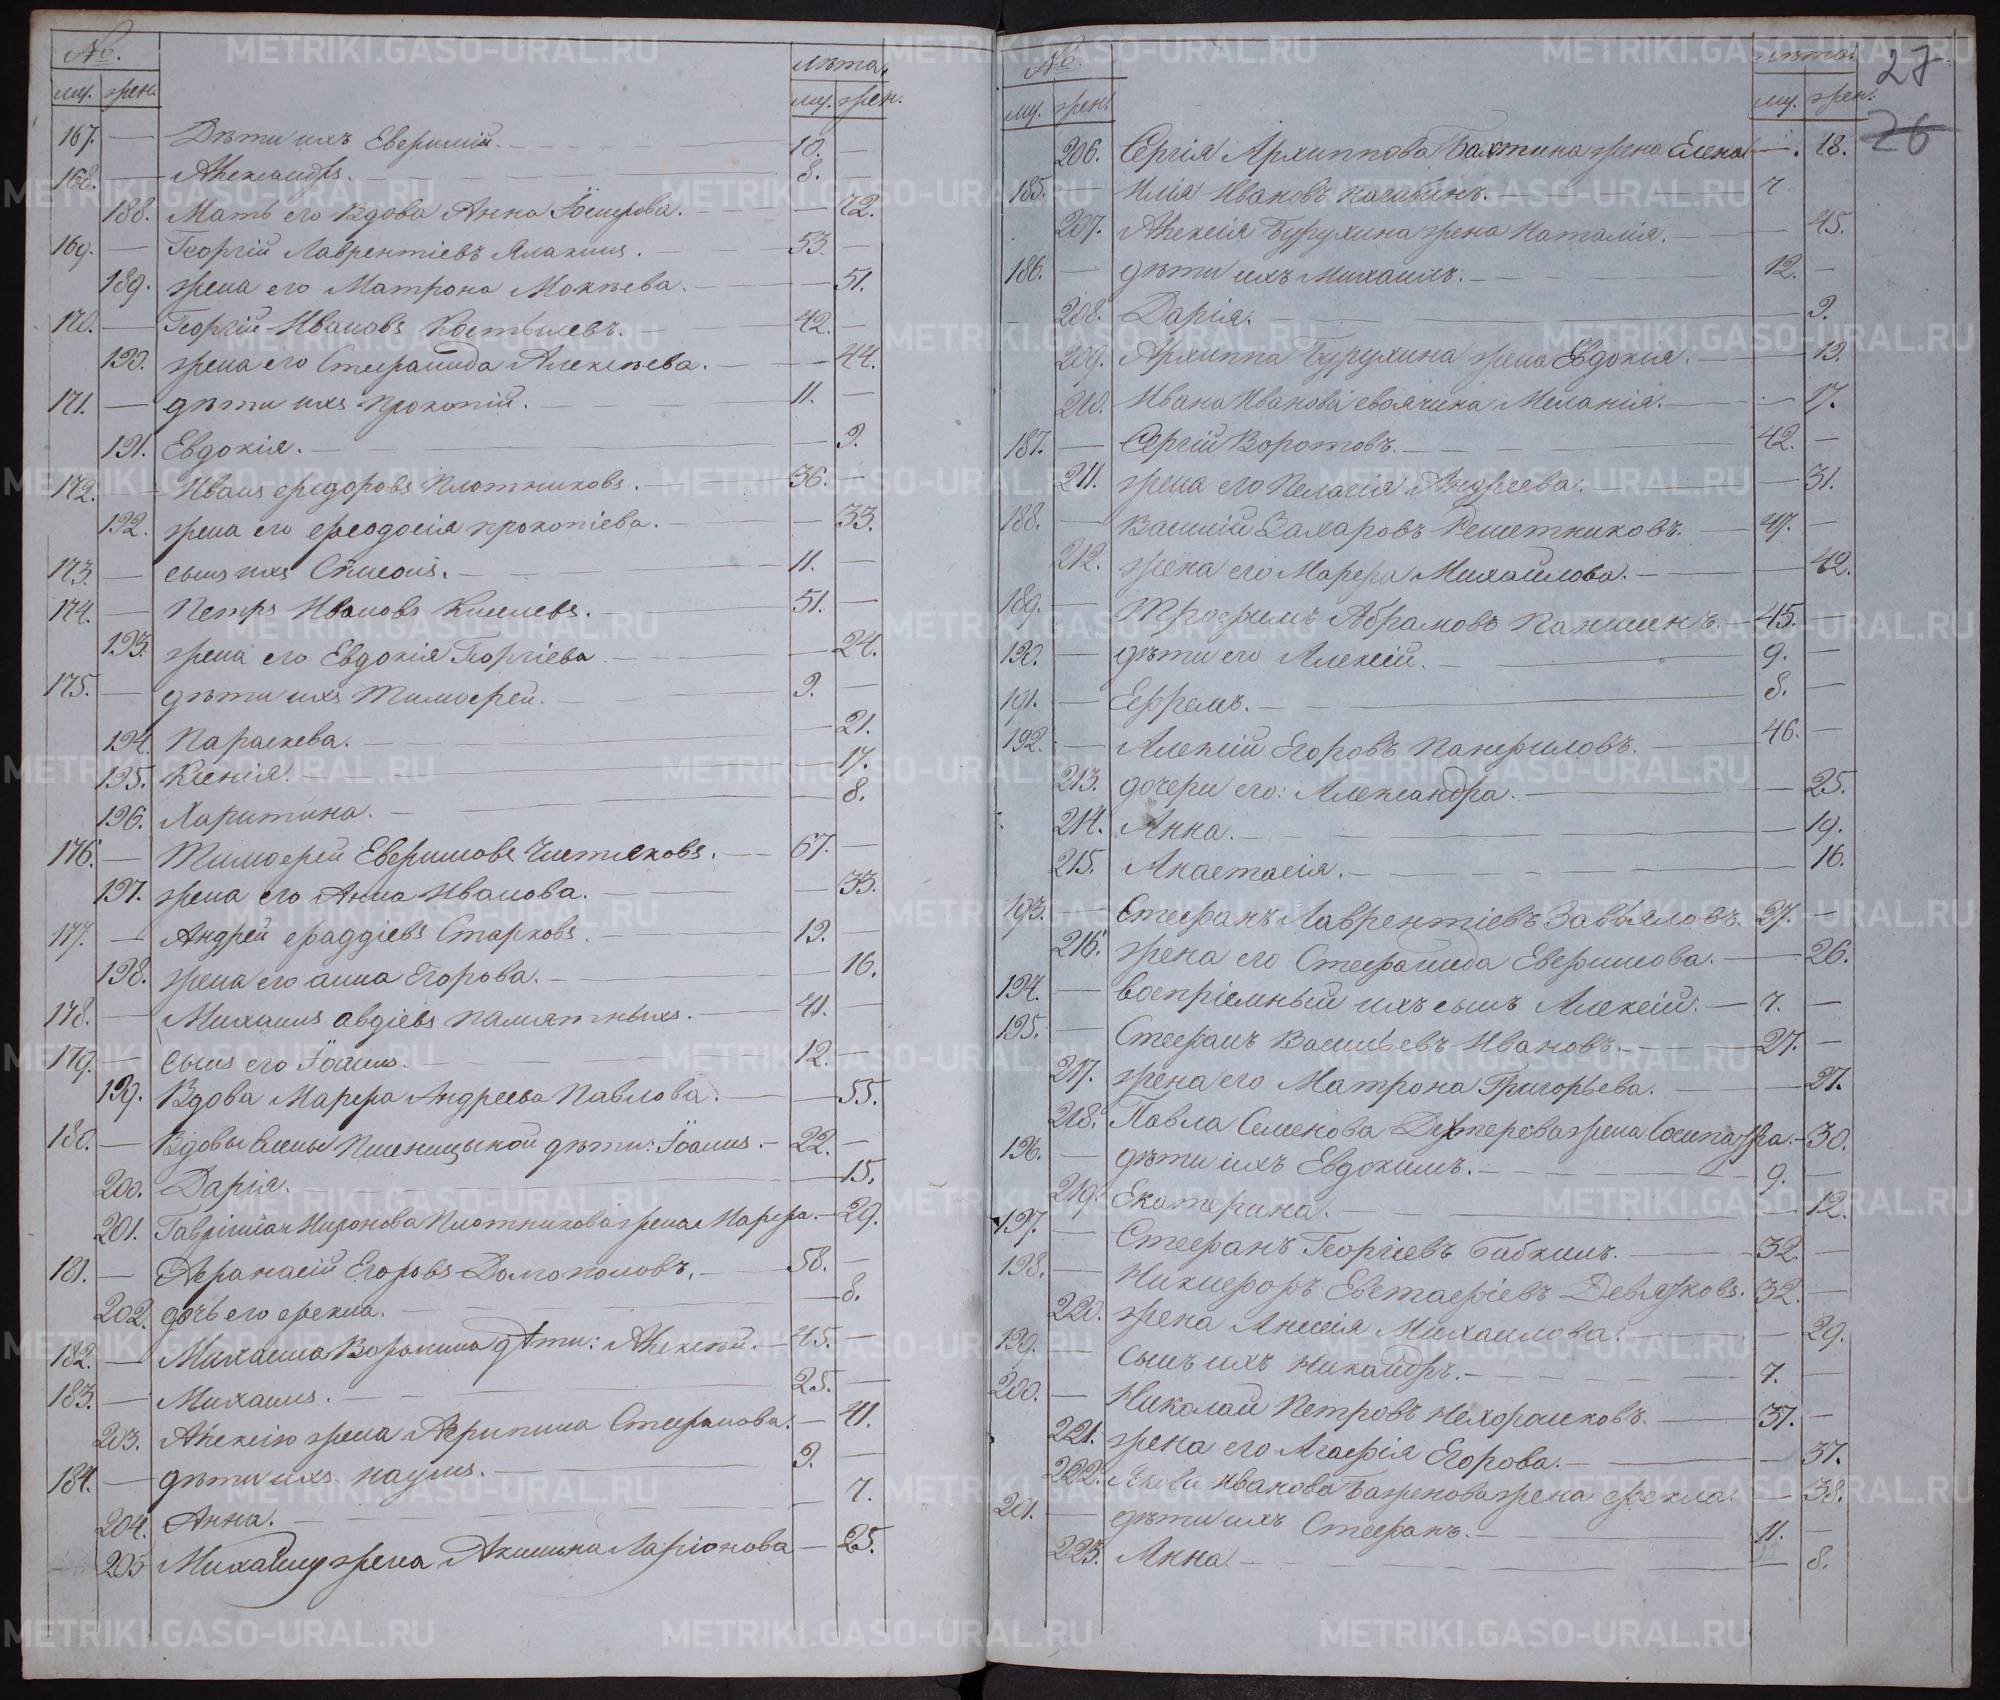 №. Лѣта.
му. жен. му. жен.
167. — Дѣти ихъ Евѳимій. 10. —
168. — Александръ. 8. —
188. Мать его вдова Анна Іосифова. — 72.
169. — Георгій Лаврентіевъ Ялакинъ. 53. —
189. жена его Матрона Мокѣева. — 51.
170. — Георгій Ивановъ Костылевъ. 42. —
190. жена его Стефанида Алексѣева. — 44.
171. — дѣти ихъ Прокопій. 11. —
191. Евдокія. — 9.
172. — Иванъ Ѳедоровъ Плотниковъ. 36. —
192. жена его Ѳеодосія Прокопіева. — 33.
173. — сынъ ихъ Симеонъ. 11. —
174. — Петръ Ивановъ Киселевъ. 51. —
193. жена его Евдокія Георгіева — 24.
175. — дѣти ихъ Тимоѳей. 9. —
194. Параскева. — 21.
195. Ксенія. — 17.
196. Харитина. — 8.
176. — Тимоѳей Евѳимовъ Чистяковъ. 67. —
197. жена его Анна Иванова. — 33.
177. — Андрей Ѳаддіевъ Старковъ. 19. —
198. жена его Анна Егорова. — 16.
178. — Михаилъ Авдіевъ Памятныхъ. 41. —
179. — сынъ его Іоаннъ. 12. —
199. Вдова Марѳа Андреева Павлова. — 55.
180. — Вдовы Пшеницыной дѣти: Іоаннъ. 22. —
200. Дарія. — 15.
201. Гавріила Миронова Плотникова жена Марѳа. — 29.
181. — Аѳанасій Егоровъ Долгополовъ. 58. —
202. дочь его Ѳекла. — 8.
182. — Михаила Воронина дѣти: Алексѣй. 45. —
183. — Михаилъ. 25. —
203. Алексію жена Агрипина Стефанова. — 41.
184. — дѣти ихъ Наумъ. 9. —
204. Анна. — 7.
205 Михаилу жена Акилина Ларіонова — 25.
27
26
№. лѣта.
му. жен. му. жен.
206. Сергія Архиппова Бахтина жена Елена — 18.
185. — Илія Ивановъ Нагибинъ. 7
207. Алексія Бурухина жена Наталія. — 45.
186. — дѣти ихъ Михаилъ. 12. —
208. Дарія. — 9.
209. Архиппа Бурухина жена Евдокія. — 19.
210. Ивана Иванова своячина Меланія. — 17.
187. — Сергій Воротовъ. 42. —
211. жена его Пелагія Андреева. — 31.
188. — Василій Захаровъ Решетниковъ. 47. —
212. жена его Марѳа Михайлова. — 42.
189. — Трофимъ Абрамовъ Паншинъ. 45. —
190. — дѣти его Алексій. 9. —
191. — Ефремъ. 8. —
192. — Алексій Егоровъ Панфиловъ. 46. —
213. дочери его: Александра. — 25.
214. Анна. — 19.
215. Анастасія. — 16.
193. — Стефанъ Лаврентіевъ Завьяловъ. 27. —
216. жена его Стефанида Евѳимова. — 26.
194. — воспріемный ихъ сынъ Алексій. 7. —
195. — Стефанъ Васильевъ Ивановъ. 27. —
217. жена его Матрона Григорьева. — 27.
218. Павла Семенова Дехтерева жена Сосипатра. — 30.
196. — дѣти ихъ Евдокимъ. 9. —
219. Екатерина. — 12.
197. — Стефанъ Георгіевъ Бабкинъ. 32. —
198. — Никифоръ Евстафіевъ Девятковъ. 32. —
220. жена Анисія Михаилова. — 29.
199. — сынъ ихъ Никандръ. 7. —
200. — Николай Петровъ Нехорошковъ. 37. —
221. жена его Агафія Егорова. — 37.
222. Якова Иванова Баженова жена Ѳекла. — 38.
201. — дѣти ихъ Стефанъ. 11. —
223. Анна. — 8.